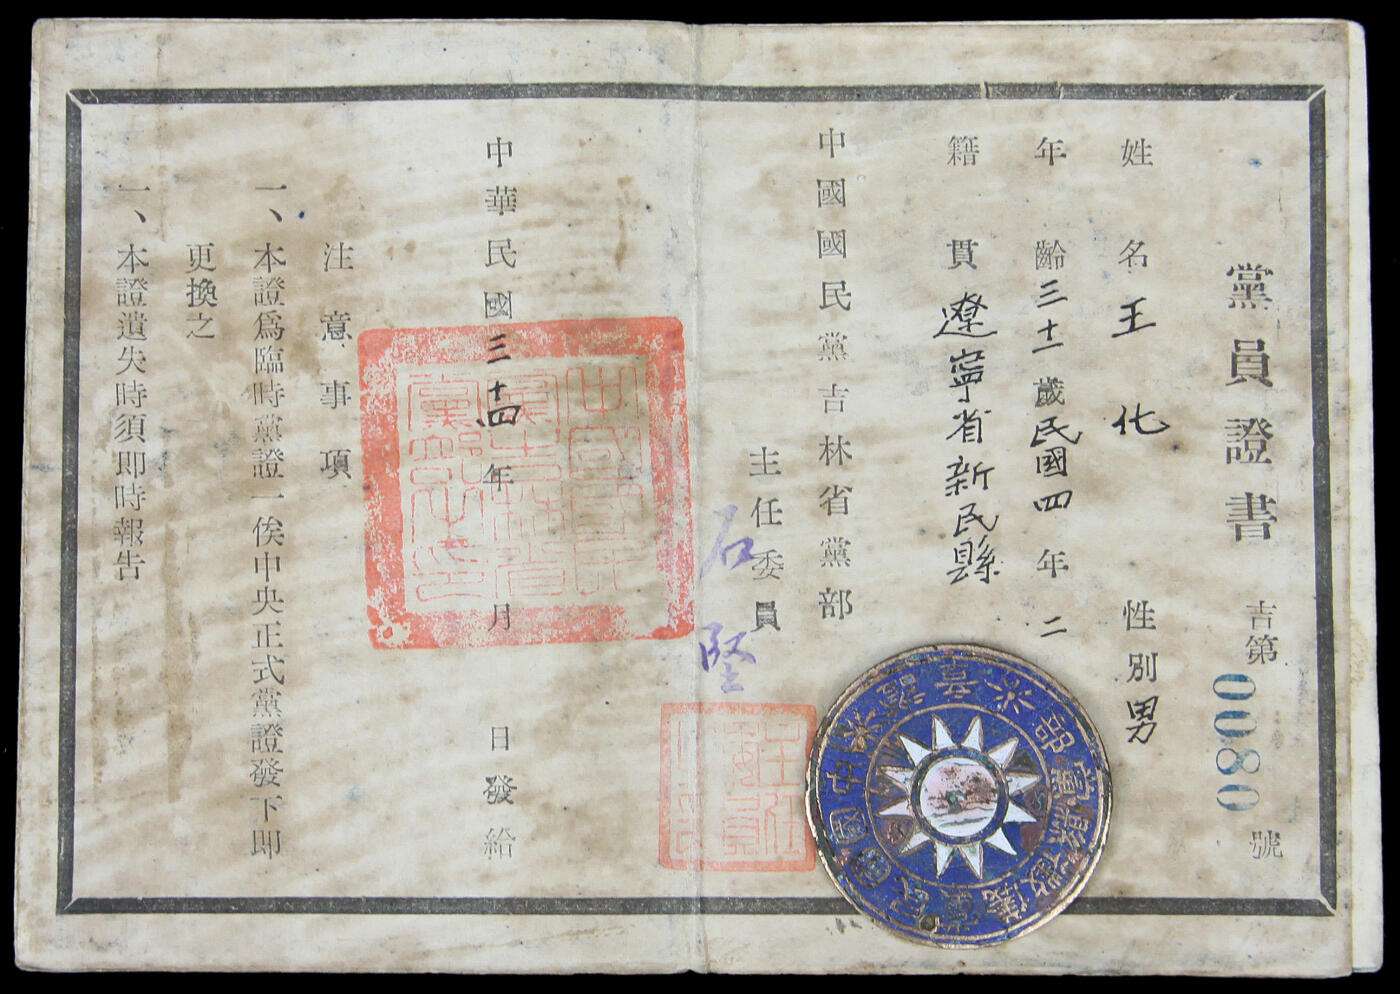 黨員證書
吉第0080號
姓名王化 性別男
年齡三十一歲民國四年二
籍貫遼寧省新民縣
中國國民黨吉林省黨部
主任委員
石堅
中華民國三十四年 月 日發給
中國國民黨吉林省黨部之印
主任委員
注意事項
一、本證爲臨時黨證一俟中央正式黨證發下即
更換之
一、本證遺失時須即時報告
中國國民黨